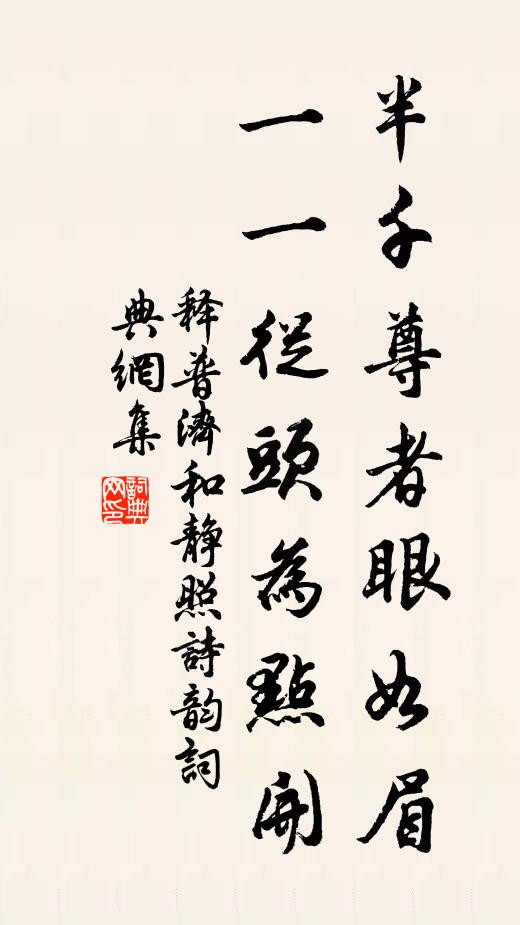 半千尊者眼如眉
一一從頭為點開
释普濟和静照詩韵詞
典網集
詞典網印